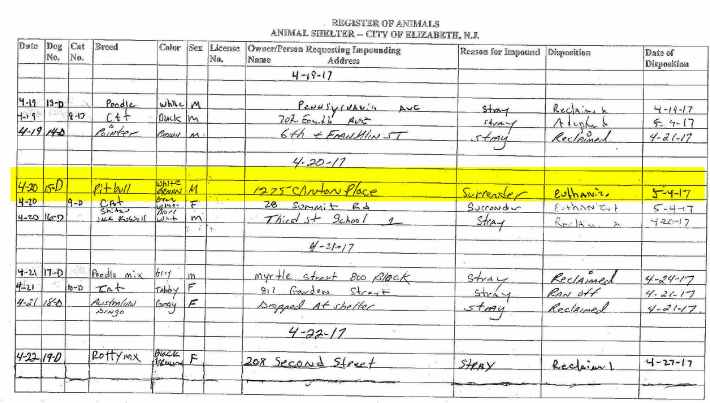 REGISTER OF ANIMALS
ANIMAL SHELTER – CITY OF ELIZABETH, N.J.
Date Dog No. Cat No. Breed Color Sex License No. Owner/Person Requesting Impounding Name Address Reason for Impound Disposition Date of Disposition
4-19-17
4-19 13-D Poodle white M Pennsylvania Ave Stray Reclaimed 4-19-17
4-19 8-D Cat Black M 702 South Ave stray Adopted 5-4-17
4-19 14-D Pointer Brown M 6th + Franklin ST stray Reclaimed 4-21-17
4-20-17
4-20 15-D Pitbull White Brown M 1275 Canton Place Surrender euthanize 5-4-17
4-20 9-D Cat F 28 Summit Rd Surrender 5-4-17
4-20 16-D Jack Russell White M Third st School 2 Stray 4-20-17
4-21-17
4-21 17-D Poodle mix Grey m myrtle street 800 Block Stray Reclaimed 4-24-17
4-21 10-D Cat Tabby F Street Stray Ran off 4-21-17
4-21 18-D Australian Dingo F Dropped At shelter stray Reclaimed 4-21-17
4-22-17
4-22 19-D Rotty mix Black Brown F 208 Second Street Stray Reclaim 4-27-17